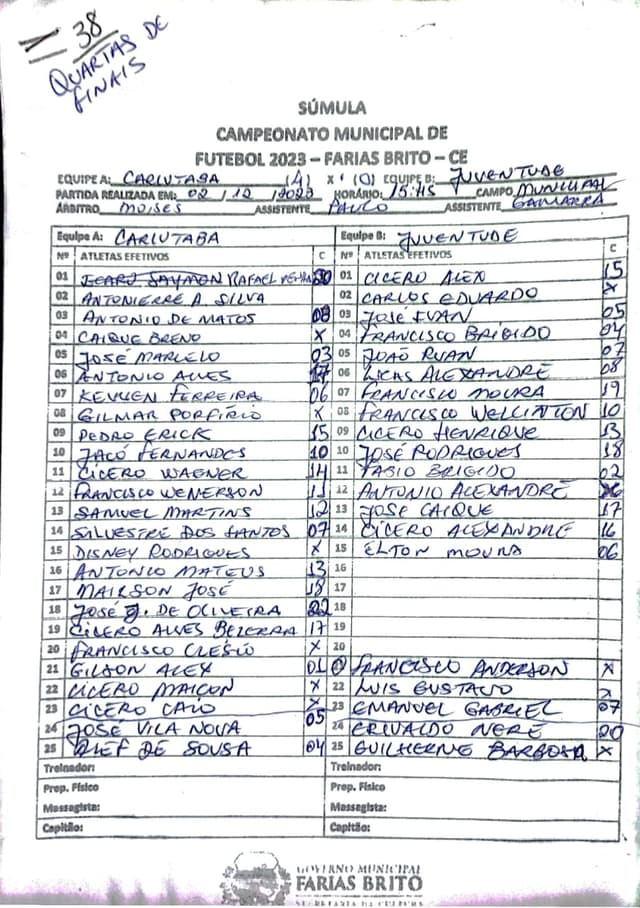 38
QUARTAS DE
FINAIS
SÚMULA
CAMPEONATO MUNICIPAL DE
FUTEBOL 2023 – FARIAS BRITO – CE
EQUIPE A: CARIUTABA (4) X (0) EQUIPE B: JUVENTUDE
PARTIDA REALIZADA EM: 02 / 12 / 2023 HORÁRIO: 15:45 CAMPO MUNICIPAL
ÁRBITRO MOISES ASSISTENTE PAULO ASSISTENTE GAMARRA
Equipe A: CARIUTABA Equipe B: JUVENTUDE
Nº ATLETAS EFETIVOS C Nº ATLETAS EFETIVOS C
01 RAFAEL 01 CICERO ALEX 15
02 ANTONIERRE A. SILVA 02 CARLOS EDUARDO X
03 ANTONIO DE MATOS 08 03 JOSÉ IVAN 05
04 CAIQUE BRENO X 04 FRANCISCO BRIGIDO 04
05 JOSÉ MARCELO 03 05 JOÃO RUAN 07
06 ANTONIO ALVES 06 LUCAS ALEXANDRE 08
07 KEVUEN FERREIRA 06 07 FRANCISCO MOURA 19
08 GILMAR PORFIRIO X 08 FRANCISCO WELLINTON 10
09 PEDRO ERICK 15 09 CICERO HENRIQUE 13
10 JACÓ FERNANDES 10 10 JOSÉ RODRIGUES 18
11 CICERO WAGNER 14 11 FABIO BRIGIDO 02
12 FRANCISCO WENERSON 11 12 ANTONIO ALEXANDRE
13 SAMUEL MARTINS 12 13 JOSE CAIQUE 17
14 SILVESTRE DOS SANTOS 07 14 CÍCERO ALEXANDRE 16
15 DISNEY RODRIGUES X 15 ELTON MOURA 06
16 ANTONIO MATEUS 13 16
17 MAIRSON JOSÉ 18 17
18 JOSÉ J. DE OLIVEIRA 22 18
19 CÍCERO ALVES BEZERRA 17 19
20 FRANCISCO CLESIO X 20
21 GILSON ALEX 01 FRANCISCO ANDERSON X
22 CICERO MAICON X 22 LUIS GUSTAVO X
23 CÍCERO CAIO X 23 EMANUEL GABRIEL 07
24 JOSÉ VILA NOVA 05 24 ERIVALDO NERE 20
25 DE SOUSA 04 25 GUILHERME BARBOSA X
Treinador: Treinador:
Prep. Físico Prep. Físico
Massagista: Massagista:
Capitão: Capitão:
GOVERNO MUNICIPAL
FARIAS BRITO
SECRETARIA DE CULTURA